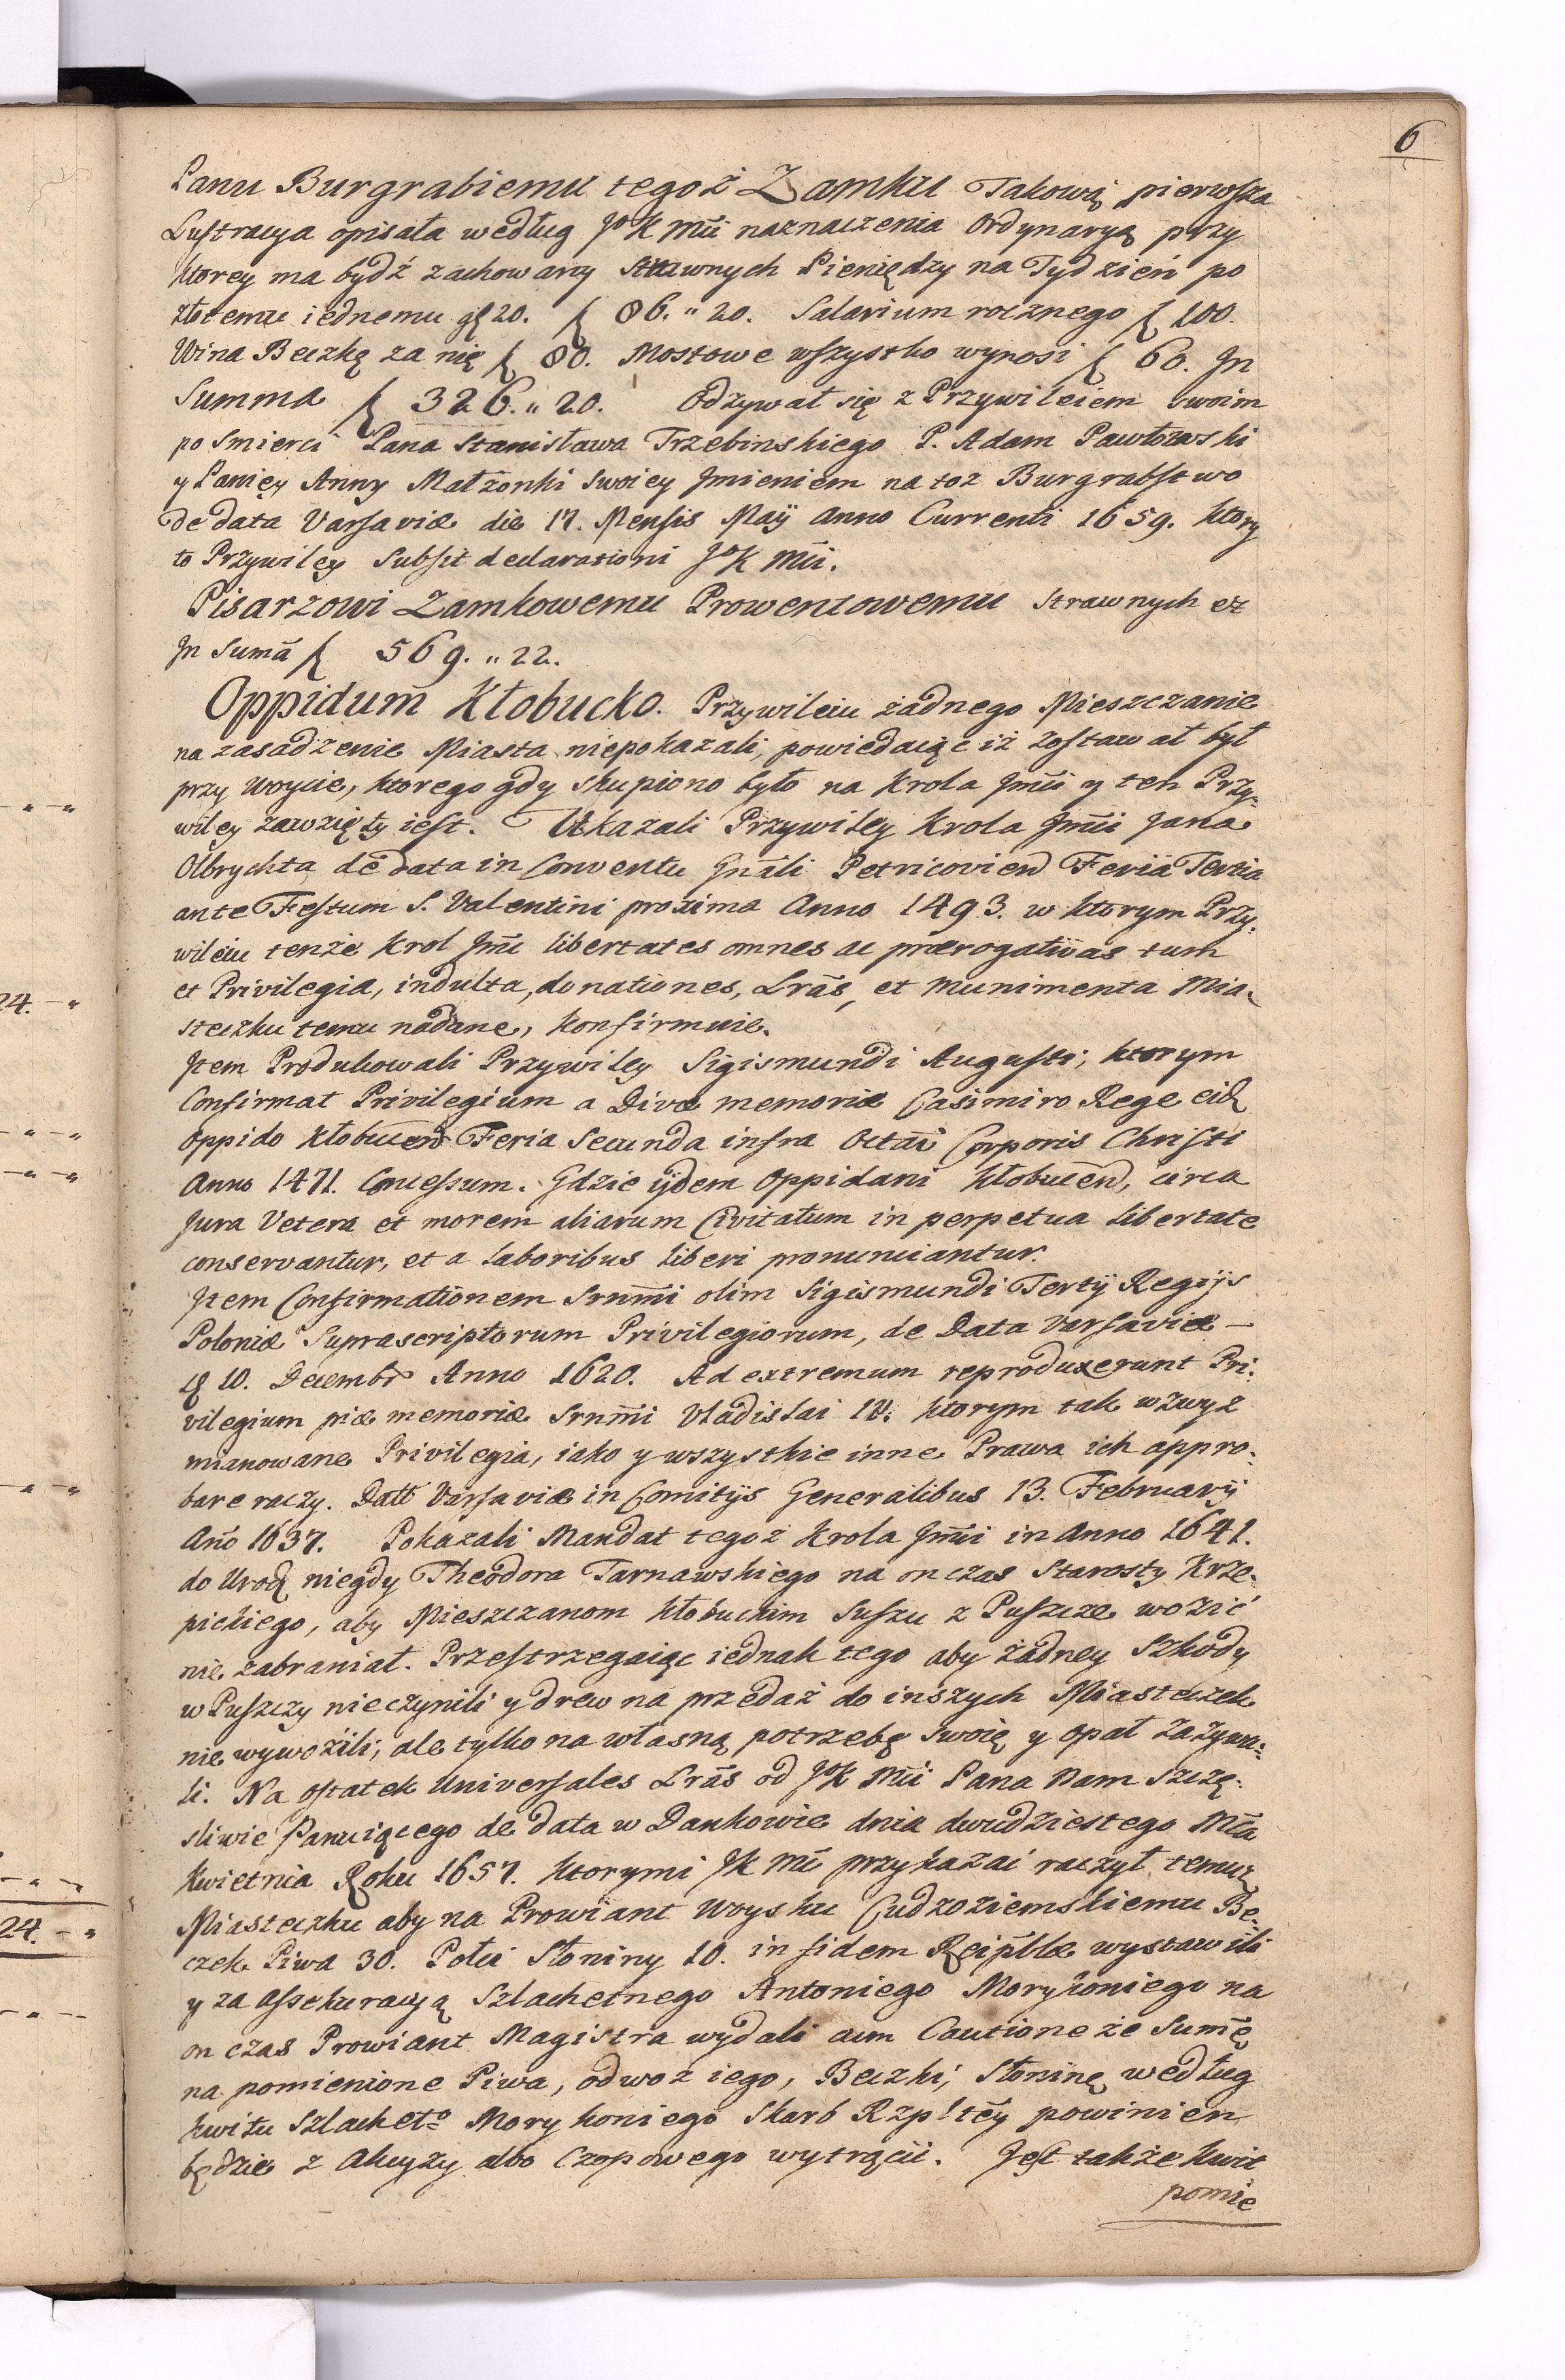 6
Panu Burgrabiemu tegoż Zamku Takowĩ pierwsza
Lustracya opisała według JoK Mũi naznaczenia Ordynaryą przy
ktorey ma bydź zachowany strawnych Pieniędzy na Tydzień po
złotemu iednemu gς 20. ʃ 86. " 20. Salarium rocznego ʃ 100.
Wina Beczkę za nię ʃ 80. Mostowe wszystko wynosi ʃ 60. Jn
Summa ʃ 326. " 20. Odzywał się z Przywileiem swoim
po Smierci Pana Stanisława Trzebinskiego P. Adam Pawłowski
y Paniey Anny Małżonki swoiey Jmieniem na toż Burgrabstwo
de data Varsaviæ die 17. Mensis Maÿ Anno Currenti 1659. ktory
to Przywiley Subsit declarationi JoK Mũi.
Pisarzowi Zamkowemu Prowentowemu strawnych et
Jn Sumã ʃ 569. " 22.
Oppidum̃ Kłobucko. Przywileiu żadnego Mieszczanie
na zasadzenie Miasta niepokazali, powiedaiąc iż zostawał był
przy Woycie, ktorego gdy skupiono było na Krola Jm̃ci y ten Przy-
wiley zawzięty iest. Ukazali Przywiley Krola Jm̃ci Jana
Olbrychta de data in Conventu Gñali Petricovien Feria Tertia
ante Festum S. Valentini proxima Anno 1493. w ktorym Przy-
wileiu tenże Krol Jm̃c libertates omnes ac prærogativas tum
et Privilegia, indulta, donationes, Lrãs, et munimenta Mia-
steczku temu nadane, konfirmuie.
Jtem Produkowali Przywiley Sigismundi Augusti, ktorym
Confirmat Privilegium a Divæ memoriæ Casimiro Rege eid
Oppido Kłobucen Feria Secunda infra Octaũ Corporis Christi
Anno 1471. Concessum. Gdzie ijdem Oppidani Kłobucen, circa
Jura Vetera et morem aliarum Civitatum in perpetua Libertate
conservantur, et a Laboribus liberi pronunciantur.
Jtem Confirmationem Srnm̃i olim Sigismundi Tertÿ Regijs
Poloniæ Suprascriptorum Privilegiorum, de Data Varsaviæ —
10. Decembr Anno 1620. Ad extremum reproduxerunt Pri-
vilegium piæ memoriæ Srnm̃i Vladislai IV. ktorym tak wzwyż
mianowane Privilegia, iako y wszystkie inne Prawa ich appro-
bare raczy. Datt Varsaviæ in Comitÿs Generalibus 13. Februarÿ
Año 1637. Pokazali Mandat tegoż Krola Jm̃ci in Anno 1641.
do Urod niegdy Theodora Tarnawskiego na onczas Starosty Krze-
pickiego, aby Mieszczanom Kłobuckim Suszu z Puszcze wozić
nie zabraniał. Przestrzegaiąc iednak tego aby żadney Szkody
w Puszczy nieczynili y drew na przedaż do inszych Miasteczek
nie wywozili, ale tylko na własną potrzebę swoię y opał zażywa-
li. Na ostatek Universales Lrãs od JoK Mũi Pana Nam szczę-
sliwie Panuiącego de data w Dankowie dnia dwudziestego Mc̃a
Kwietnia Roku 1657. ktorymi JK Mć przykazai raczył temuż
Miasteczku aby na Prowiant Woysku Cudzoziemskiemu Be-
czek Piwa 30. Połci Słoniny 10. in fidem Reipblæ wystawili
y za assekuracyą Szlachetnego Antoniego Morykoniego na
on czas Prowiant Magistra wydali cum Cautione że Sum̃ę
na pomienione Piwa, odwoz iego, Beczki, Słoninę według
kwitu Szlacheto Morykoniego Skarb Rzpltey powinien
będzie z Akcyzy albo Czopowego wytrącić. Jest także kwit
pomie